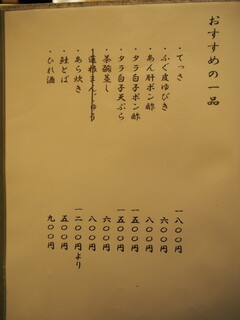 おすすめの一品
・てっさ 一八〇〇円
・ふぐ皮ゆびき 六〇〇円
・あん肝ポン酢 八〇〇円
・タラ白子ポン酢 一五〇〇円
・タラ白子天ぷら 一五〇〇円
・茶碗蒸し 六〇〇円
・蓮根まんじゅう 八〇〇円
・あら炊き 一二〇〇円より
・鮭とば 五〇〇円
・ひれ酒 九〇〇円